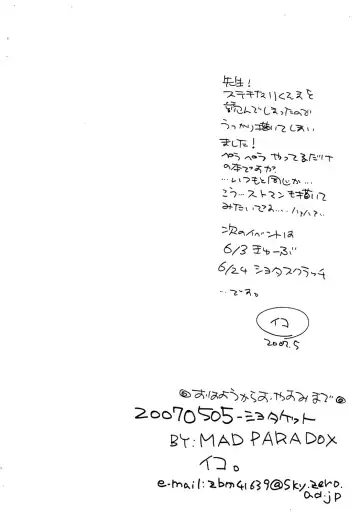 先生!
ステキな
読んでしまったので
うっかり描いてしまい
ました!
ペラペラ やってるだけ
の本ですが、
…いつもと同じか…
こう…ストマンも描いて
みたいでスよ…ハァハァ…
次のイベントは
6/3 きゅーぶ
6/24 ショタスクラッチ
…です。
イコ
2007.5
◎おはようからおやすみまで◎
20070505-ショタケット
BY: MAD PARADOX
イコ。
e-mail: zbm41639@sky.zero.
ad.jp